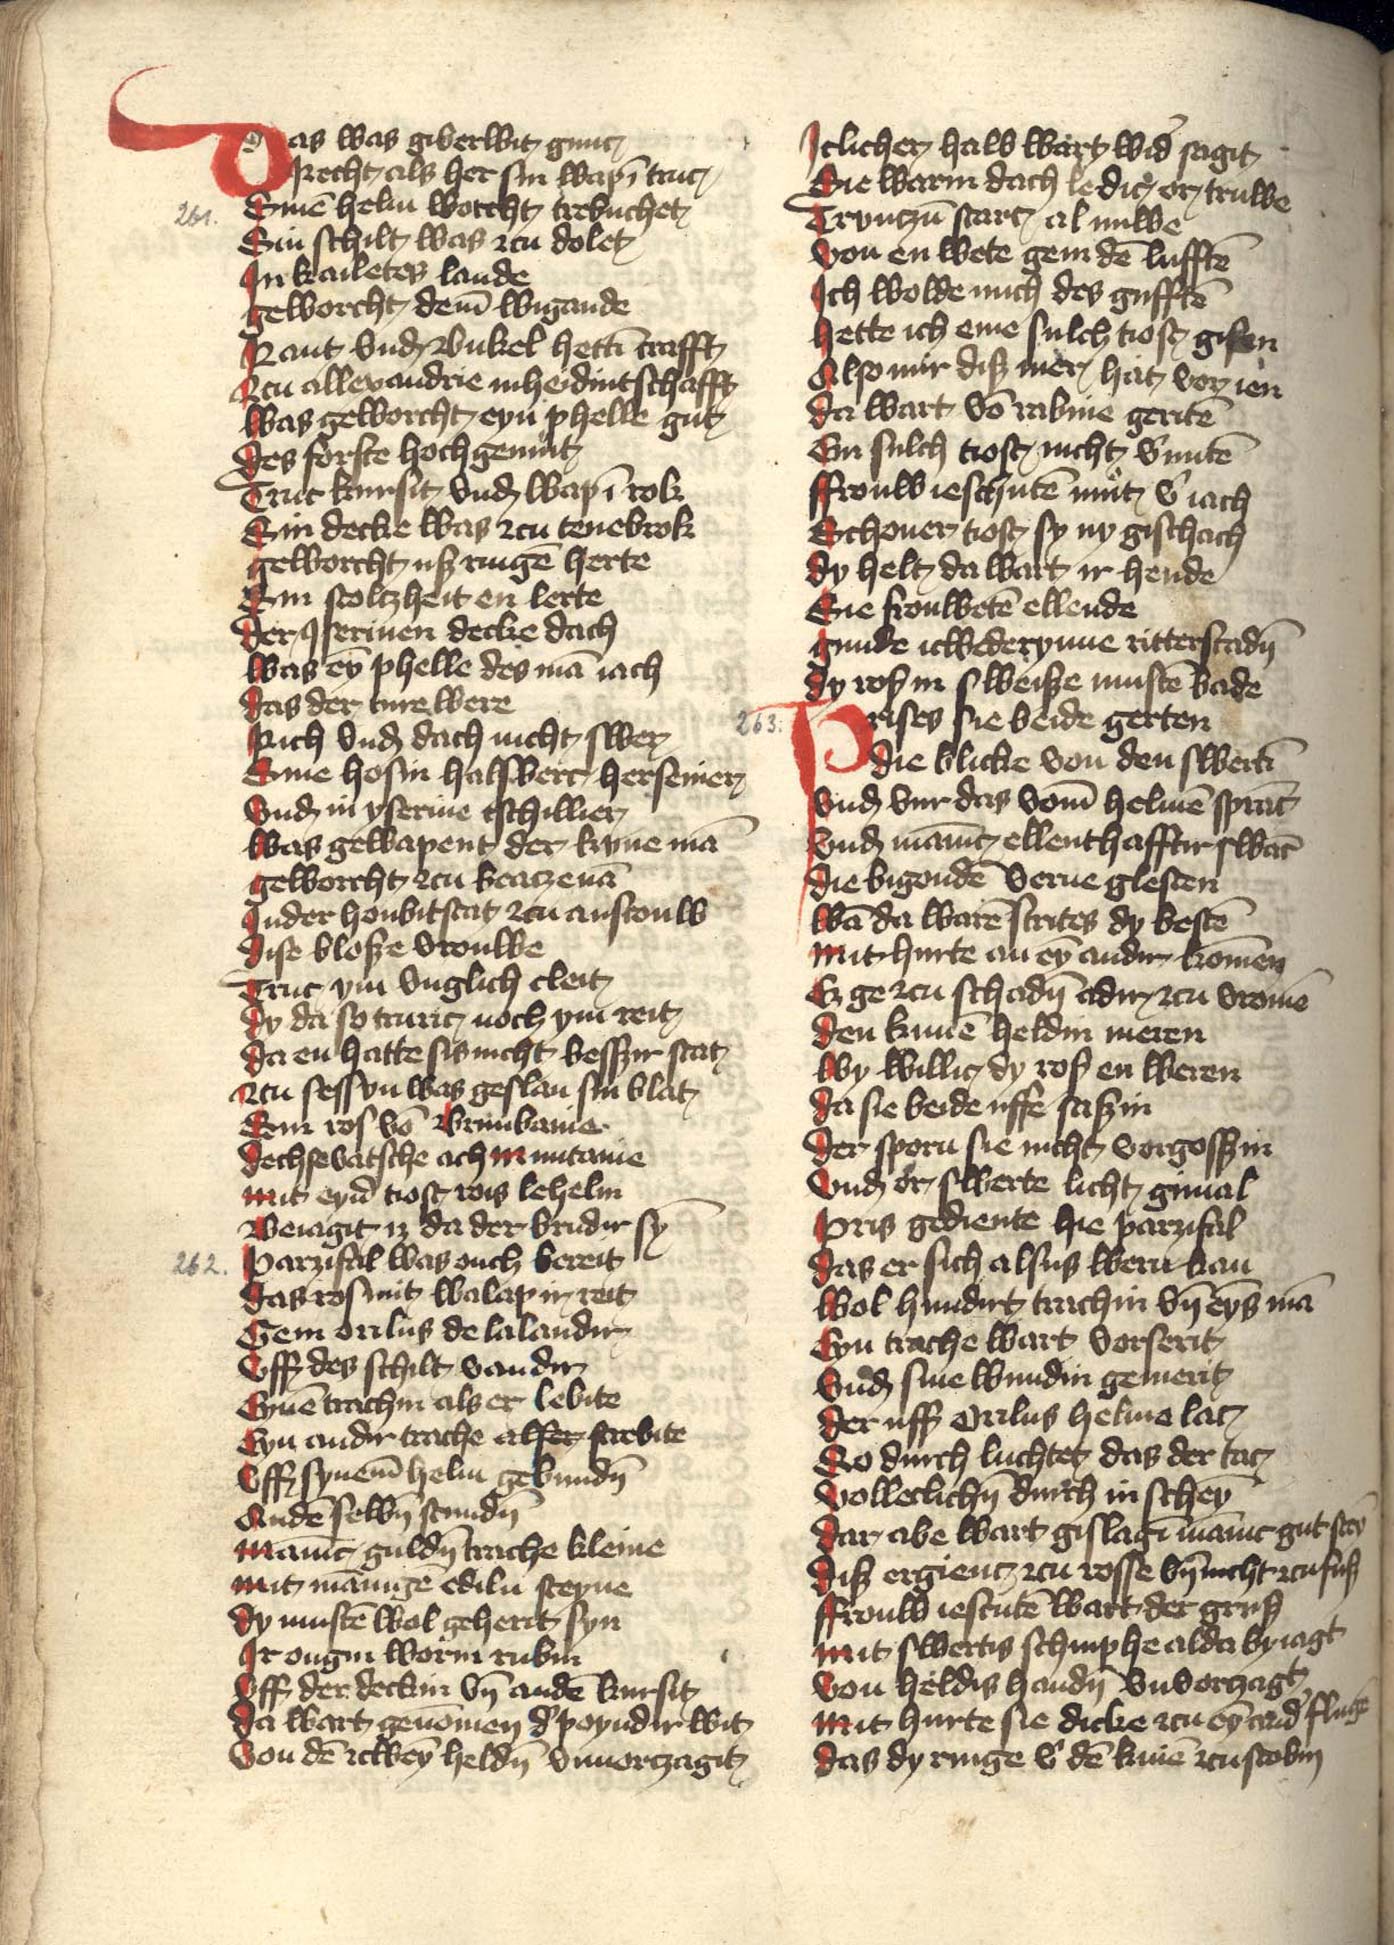 Das was giverwit gnuc
Recht als her sin wapī truc
261.
Sinē helm worcht trebuchet
Sin schilt was zcu dolet
In kailetes lande
geworcht dem̄ wigande
Rant vnd bukel hettī crafft
Zcu allexandrie inheidintschafft
Was geworcht eyn phelle gut
des forste hochgemut
Truc kursit vnd wapī rok
Sin decke was zcu tenebrok
geworcht usz ringē herte
Sin stoltzheit en lerte
der Iserinen decke dach
Was eȳ phelle des mā iach
das der ture were
Rich vnd dach nicht swer
Sine hosin halsberc hersenier
Vnd in yserine tschillier
Was gewapent der kune mā
geworcht zcu beatzenā
Inder houbitstat zcu anscouw
dise blosze vrouwe
Truc ym vnglich cleit
dy da so truric noch ym reit
da en hatte sis nicht besszir stat
Zcu sessyn was geslan sin blat
Sin ros vō brunbanie
dechsevatsche ach muntanie
Mit eyn̄ tiost rois lehelin
Beiagit iz da der brudir sȳ
262.
Parzifal was ouch bereit
das ros mit walap ir reit
Gem orilus de lalandir
Vff des schilt vandir
Eynē trachin als er lebite
Eyn andir trache alser starbite
Vff synem̄ helm gebundn̄
Andē selbn̄ stundn̄
Manic guldn̄ trache kleine
Mit mannigē ediln steyne
dy mustē wol geherit syn
Ir ougin worin rubin
Vff der deckin vn̄ andē kursit
da wart genomen d' poyndir wit
Von dē zcweȳ heldn̄ vnuorczagit
Iclicher halb wart wid' sagit
Sie warin dach ledic or truwe
Trunczū starc al nuwe
von en wete gem dē lufftē
Ich wolde mich des gufftē
hette ich eine sulch tiost gisen
Also mir disz mer hat vor ien
da wart vō rabine geritē
Ein sulch tiost nicht v'mitē
ffrouw ieschutē mut v' iach
Schoner tiost sy ny gischach
dy helt da wart ir hende
Sie frouwetē ellende
gunde icwederynne ritterscadn̄
dy ros in sweisze mustē bade
263.
Prises sie beide gerten
die blicke von den swertī
vnd vur das vom̄ helmē spranc
Vnd manic ellenthafftir swanc
die bigondē verne glesten
wā da warē strites dy bestē
Mit hurte an eȳ andir komen
Ez ge zcu schadn̄ adir zcu vromē
den kunē heldin meren
wy willic dy ros en weren
da sie beide uffe saszin
der sporn sie nicht vorgosszin
vnd or swerte licht gimal
Pris gediente hie parzifal
das er sich alsus wern kan
wol hundirt trachin vn̄ eȳs mā
Eyn trache wart vorserit
vnd sine wundin gemerit
der uff Orilus helme lac
So durch luchtec das der tac
Volleclichn̄ durch in scheȳ
dar abe wart gislagī manic gut stey
disz ergienc zcu rosse vn̄ nicht zcu fusz
ffrouw iescutē wart der grusz
Mit swertis schinphe alda byiagt
von heldis handn̄ vnvorczagt
Mit hurte sie dicke zcu eȳ and' flugē
das dy ringe v' dē knien zcustobin